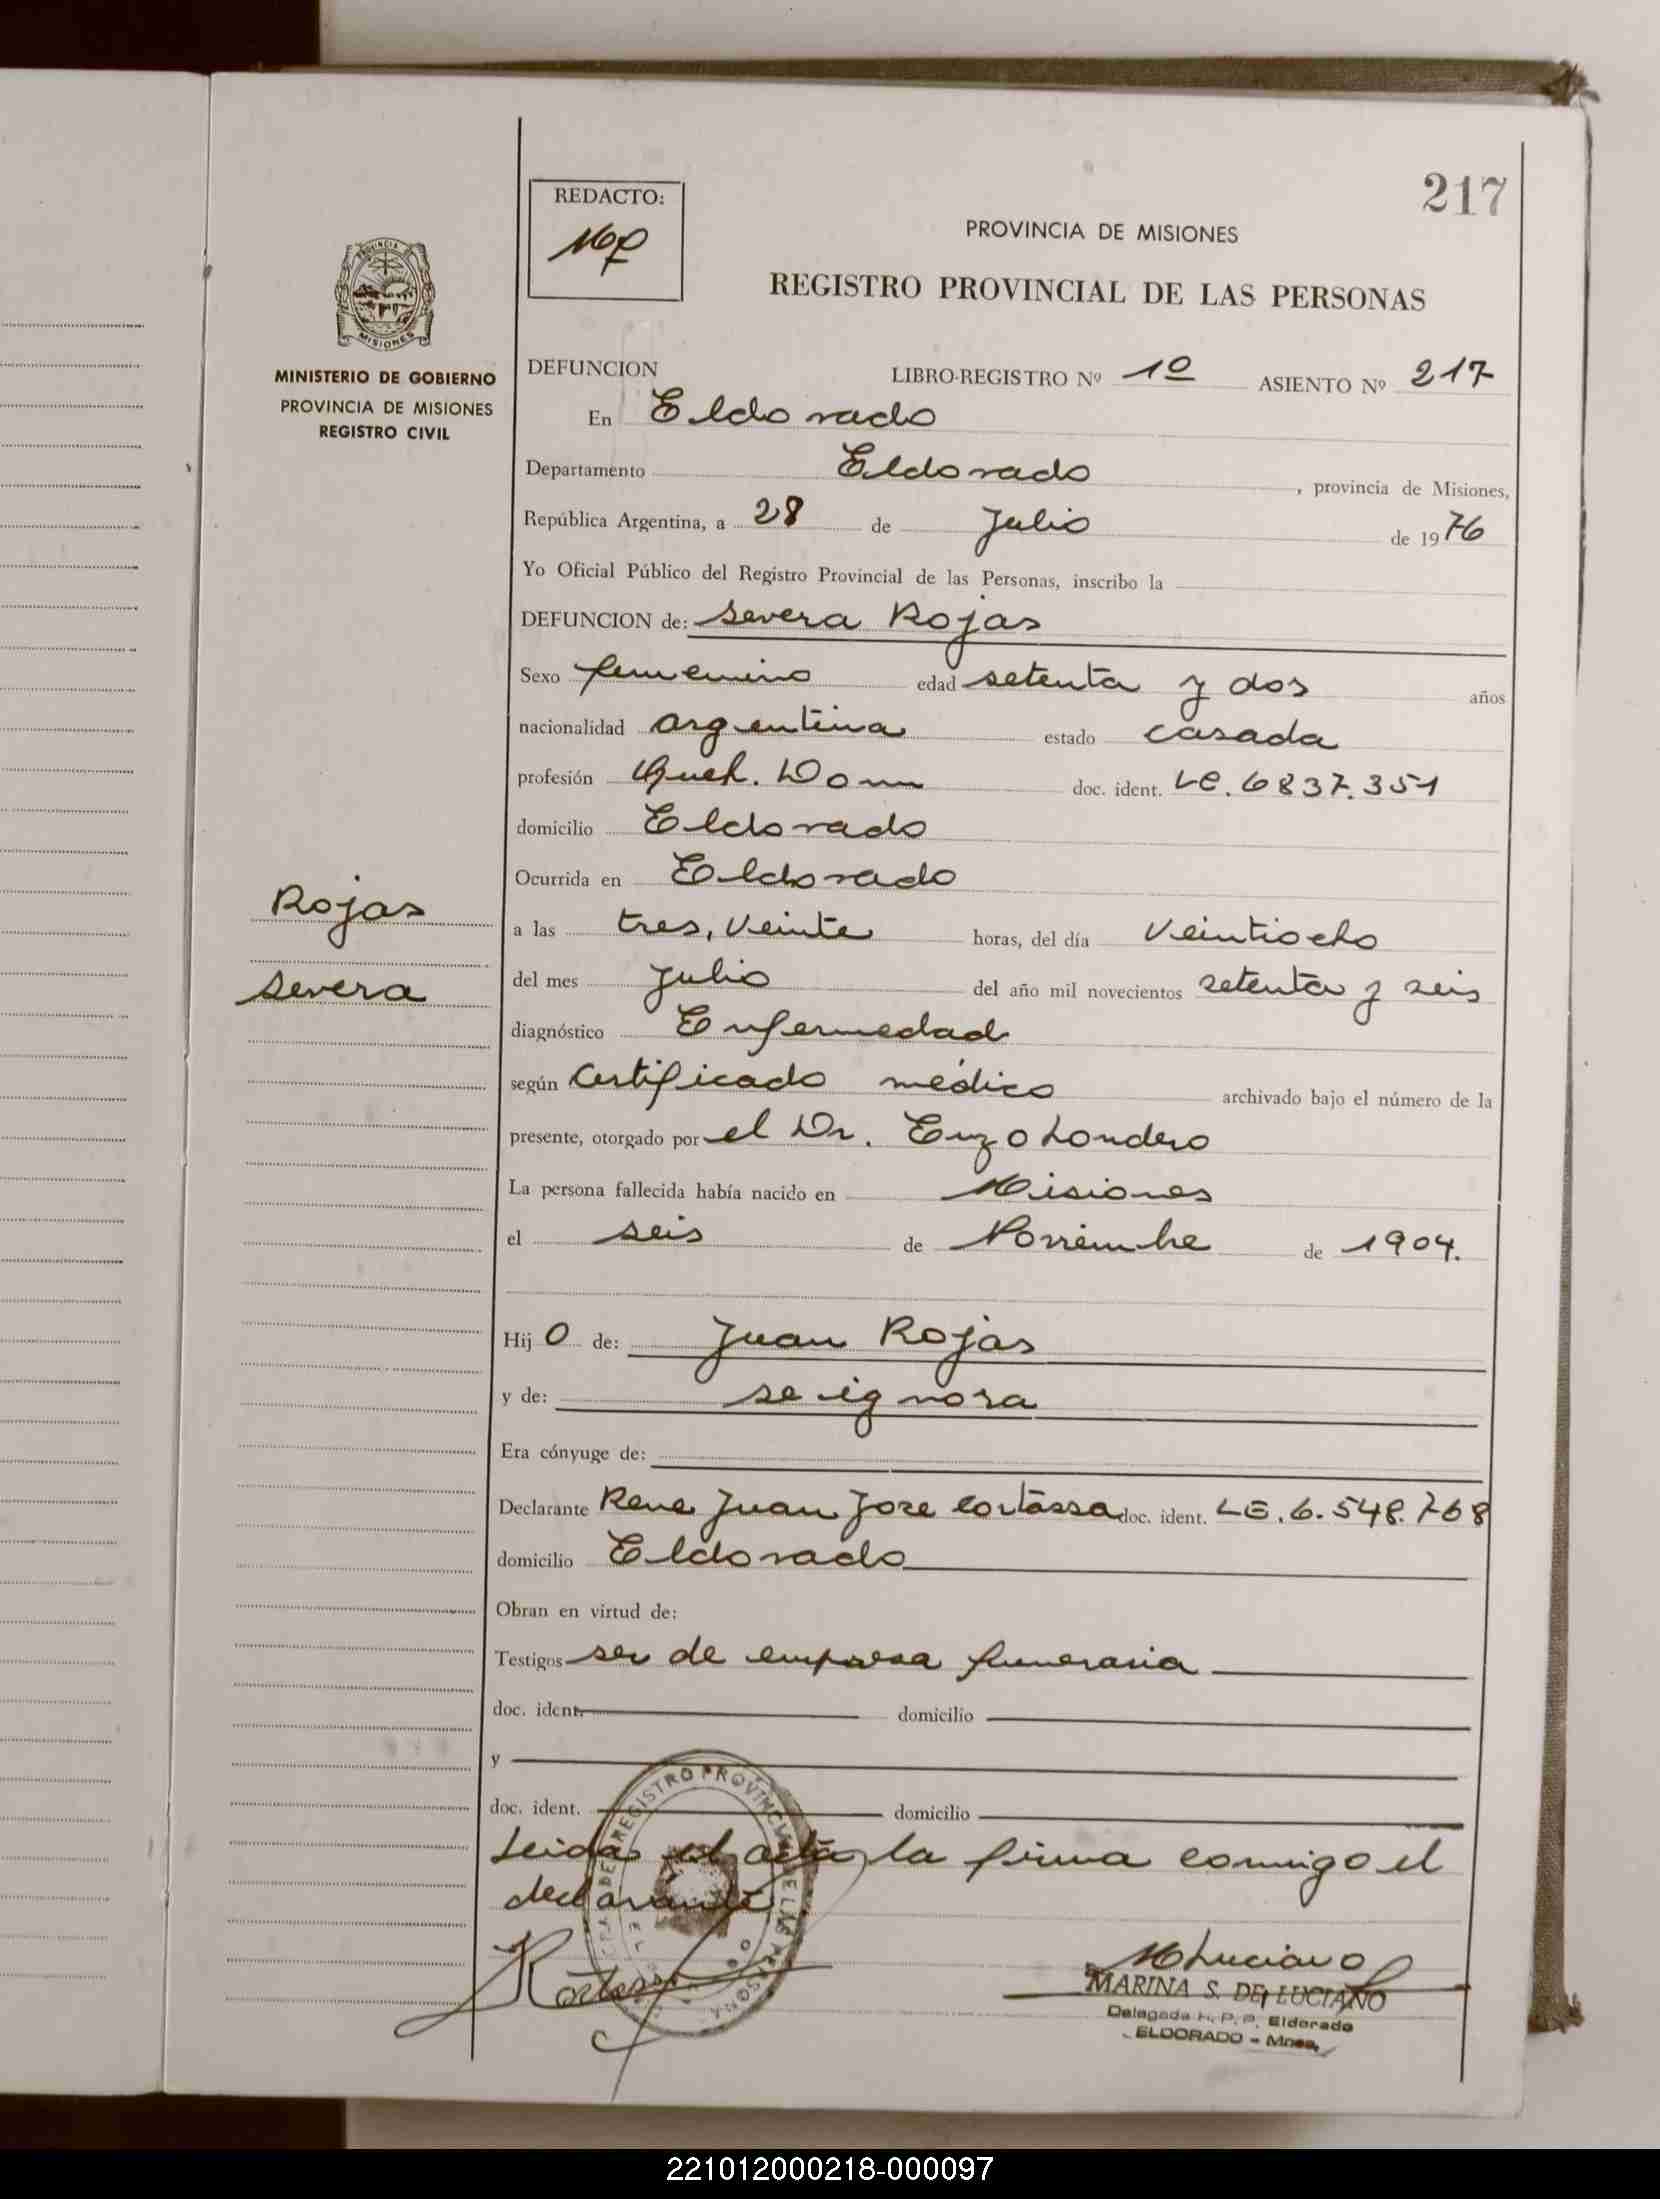 217
REDACTO:
PROVINCIA DE MISIONES
REGISTRO PROVINCIAL DE LAS PERSONAS
PROVINCIA DE
MISIONES
MINISTERIO DE GOBIERNO
PROVINCIA DE MISIONES
REGISTRO CIVIL
Rojas
Severa
DEFUNCION LIBRO-REGISTRO Nº 1º ASIENTO Nº 217
En Eldorado
Departamento Eldorado, provincia de Misiones,
República Argentina, a 28 de Julio de 1976
Yo Oficial Público del Registro Provincial de las Personas, inscribo la
DEFUNCION de: Severa Rojas
Sexo femenino edad setenta y dos años
nacionalidad argentina estado casada
profesión Queh. Dom doc. ident. LC. 6837.351
domicilio Eldorado
Ocurrida en Eldorado
a las tres, veinte horas, del día veintiocho
del mes Julio del año mil novecientos setenta y seis
diagnóstico Enfermedad
según Certificado médico archivado bajo el número de la
presente, otorgado por el Dr. Enzo Londero
La persona fallecida había nacido en Misiones
el seis de Noviembre de 1904.
Hij o de: Juan Rojas
y de: se ignora
Era cónyuge de:
Declarante Rene Juan Jose Cortassa doc. ident. LE. 6.548.768
domicilio Eldorado
Obran en virtud de:
Testigos ser de empresa funeraria
doc. ident. domicilio
y
doc. ident. domicilio
Leida el acta, la firma conmigo el
declarante
MLuciano
MARINA S. DE LUCIANO
Delegada R. P. P. Eldorado
ELDORADO - Mnes.
221012000218-000097